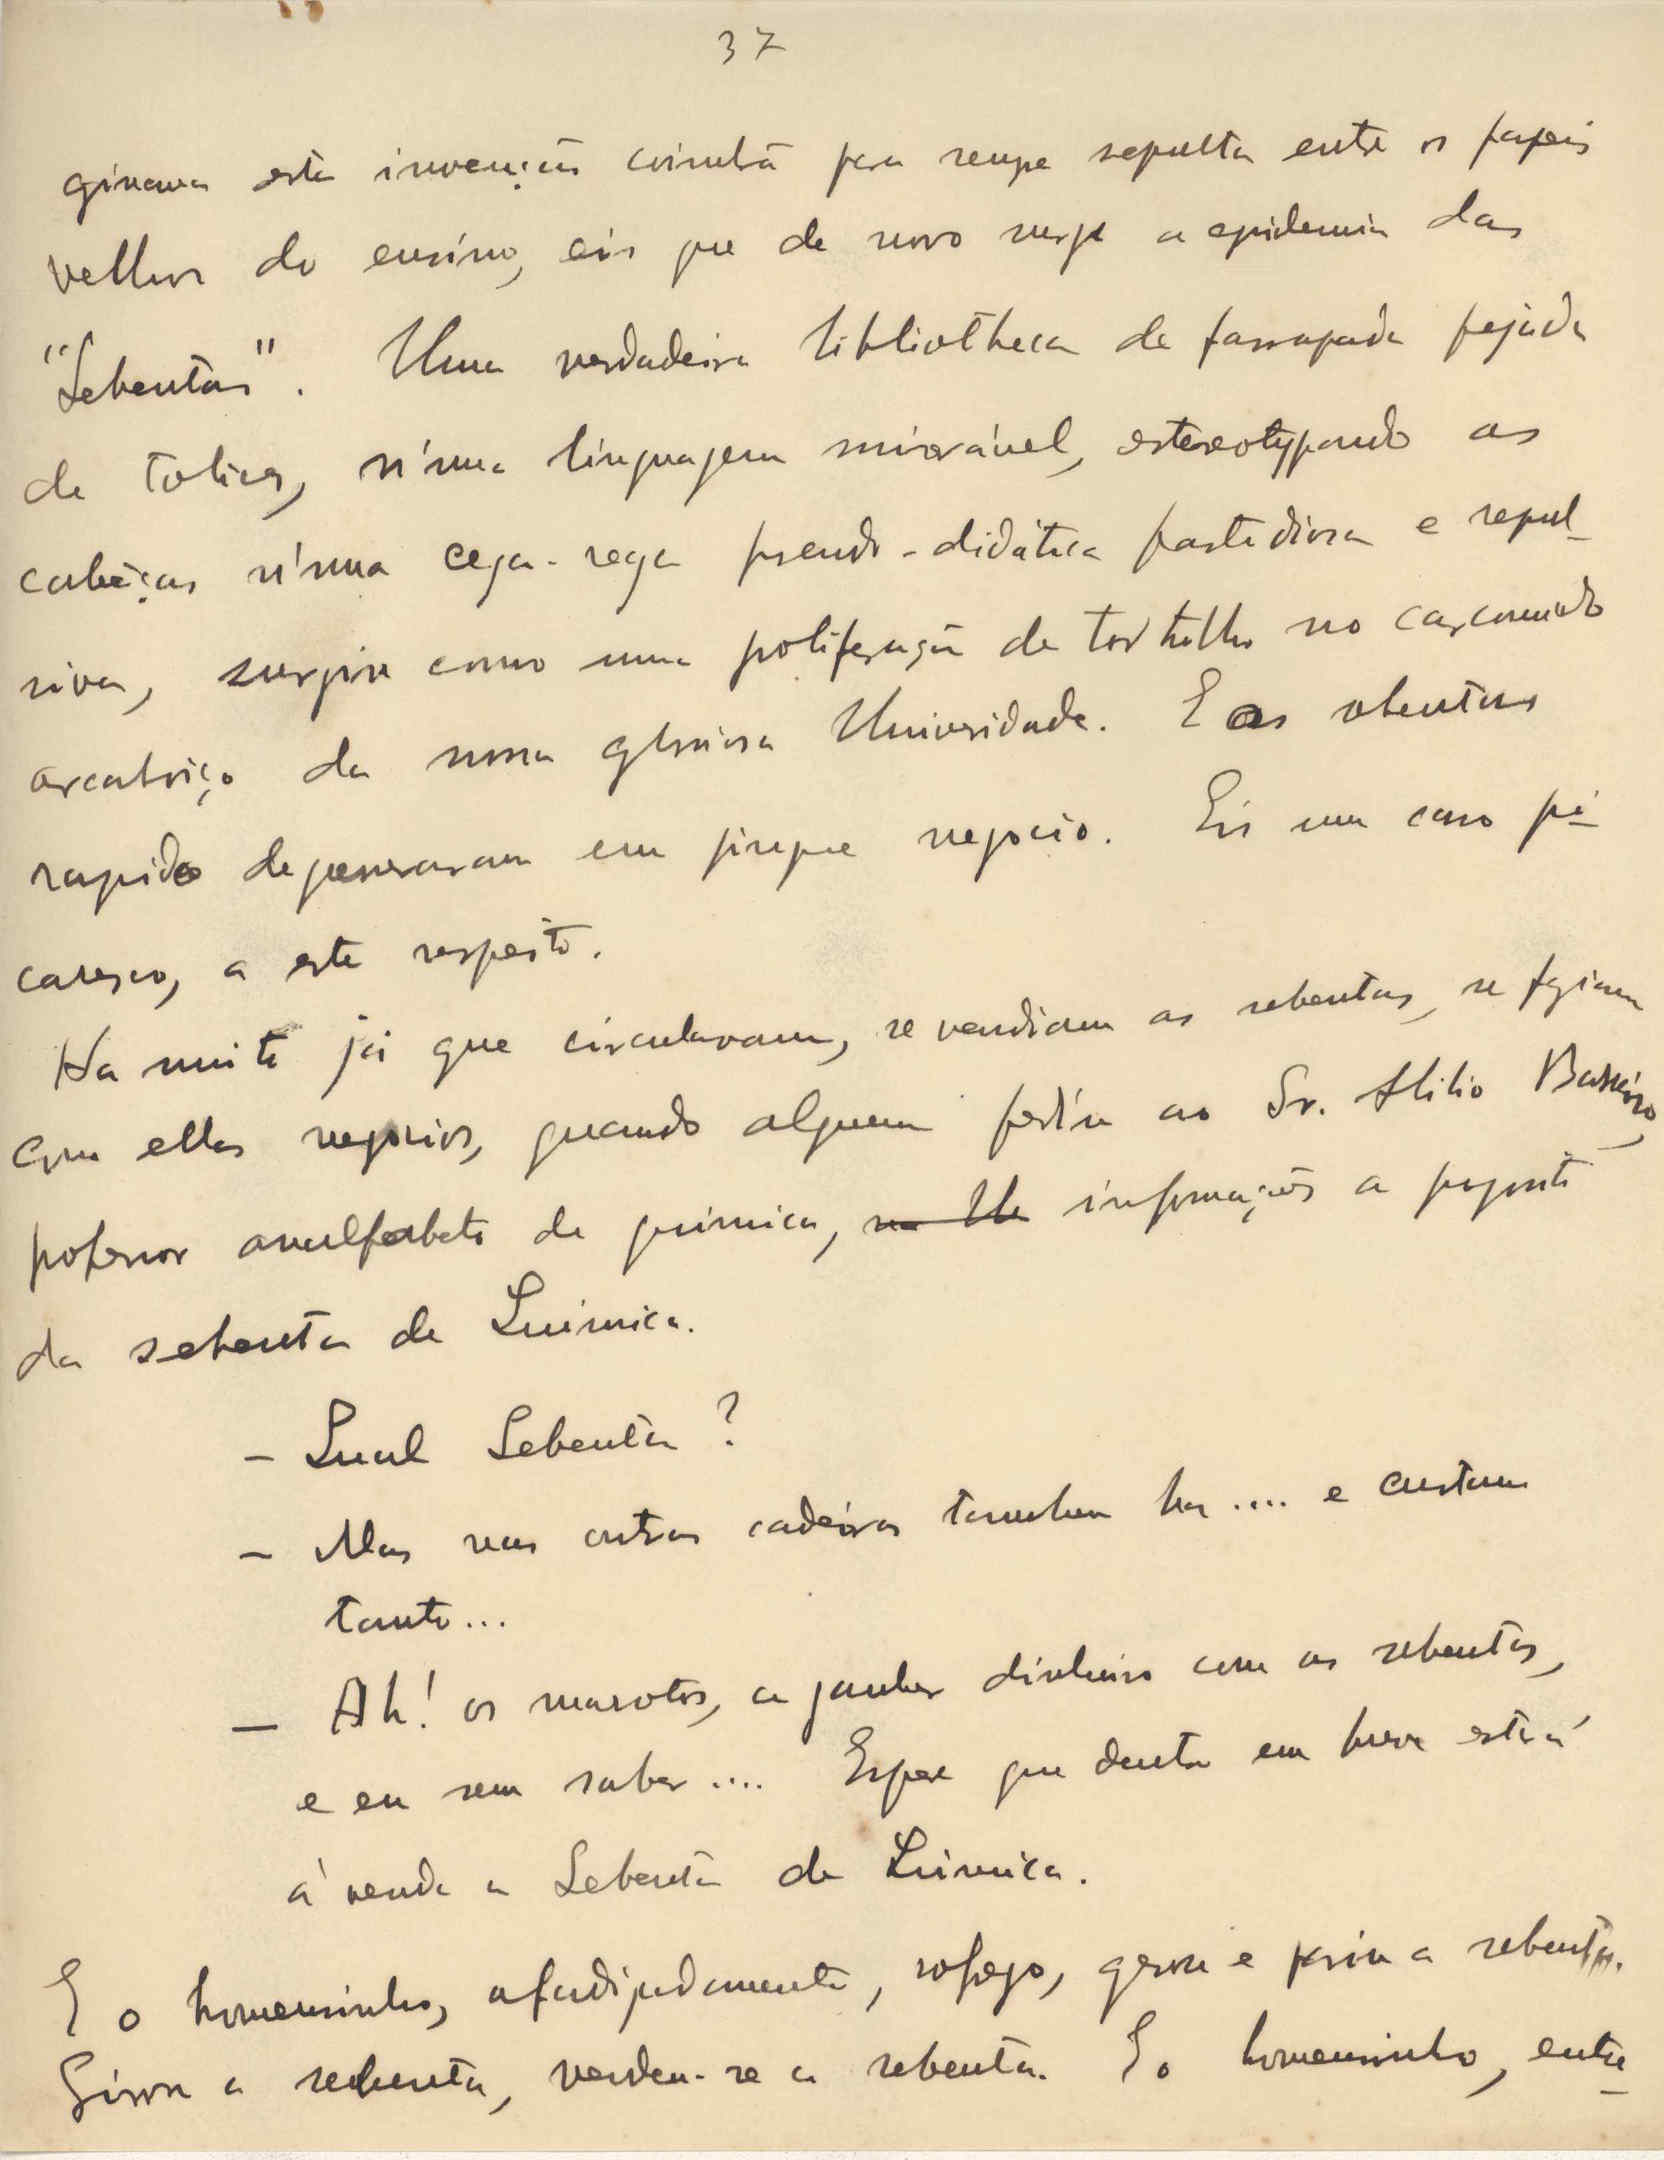 37
ginava esta invenção coimbrã para sempre sepulta entre os papeis
velhos do ensino, eis que de novo surge a epidemia das
"Sebentas". Uma verdadeira bibliotheca de farrapada pejada
de tolices, n'uma linguagem miseravel, estereotypando as
cabêças n'uma cega-rega pseudo-didática fastidiosa e repul_
siva, surgiu como uma poliferação de tortulho no carcomido
arcaboiço da nossa gloriosa Universidade. E as sebentas
rapido degeneraram em pingue negocio. Eis um caso pi_
caresco, a este respeito.
Ha muito já que circulavam, se vendiam as sebentas, se faziam
com ellas negocios, quando alguem pediu ao Sr.
professor analfabeto de quimica, informações a proposito
da sebenta de Quimica.
- Qual Sebenta?
- Mas nas outras cadeiras tambem ha .... e custam
tanto...
- Ah! os marotos, a ganhar dinheiro com as sebentas,
e eu sem saber .... Espere que dentro em breve estará
á venda a Sebenta de Quimica.
E o homemsinho, afadigadamente, sofrego, gerou e pariu a sebenta.
Girou a sebenta, vendeu-se a sebenta. E o homemsinho, entre_